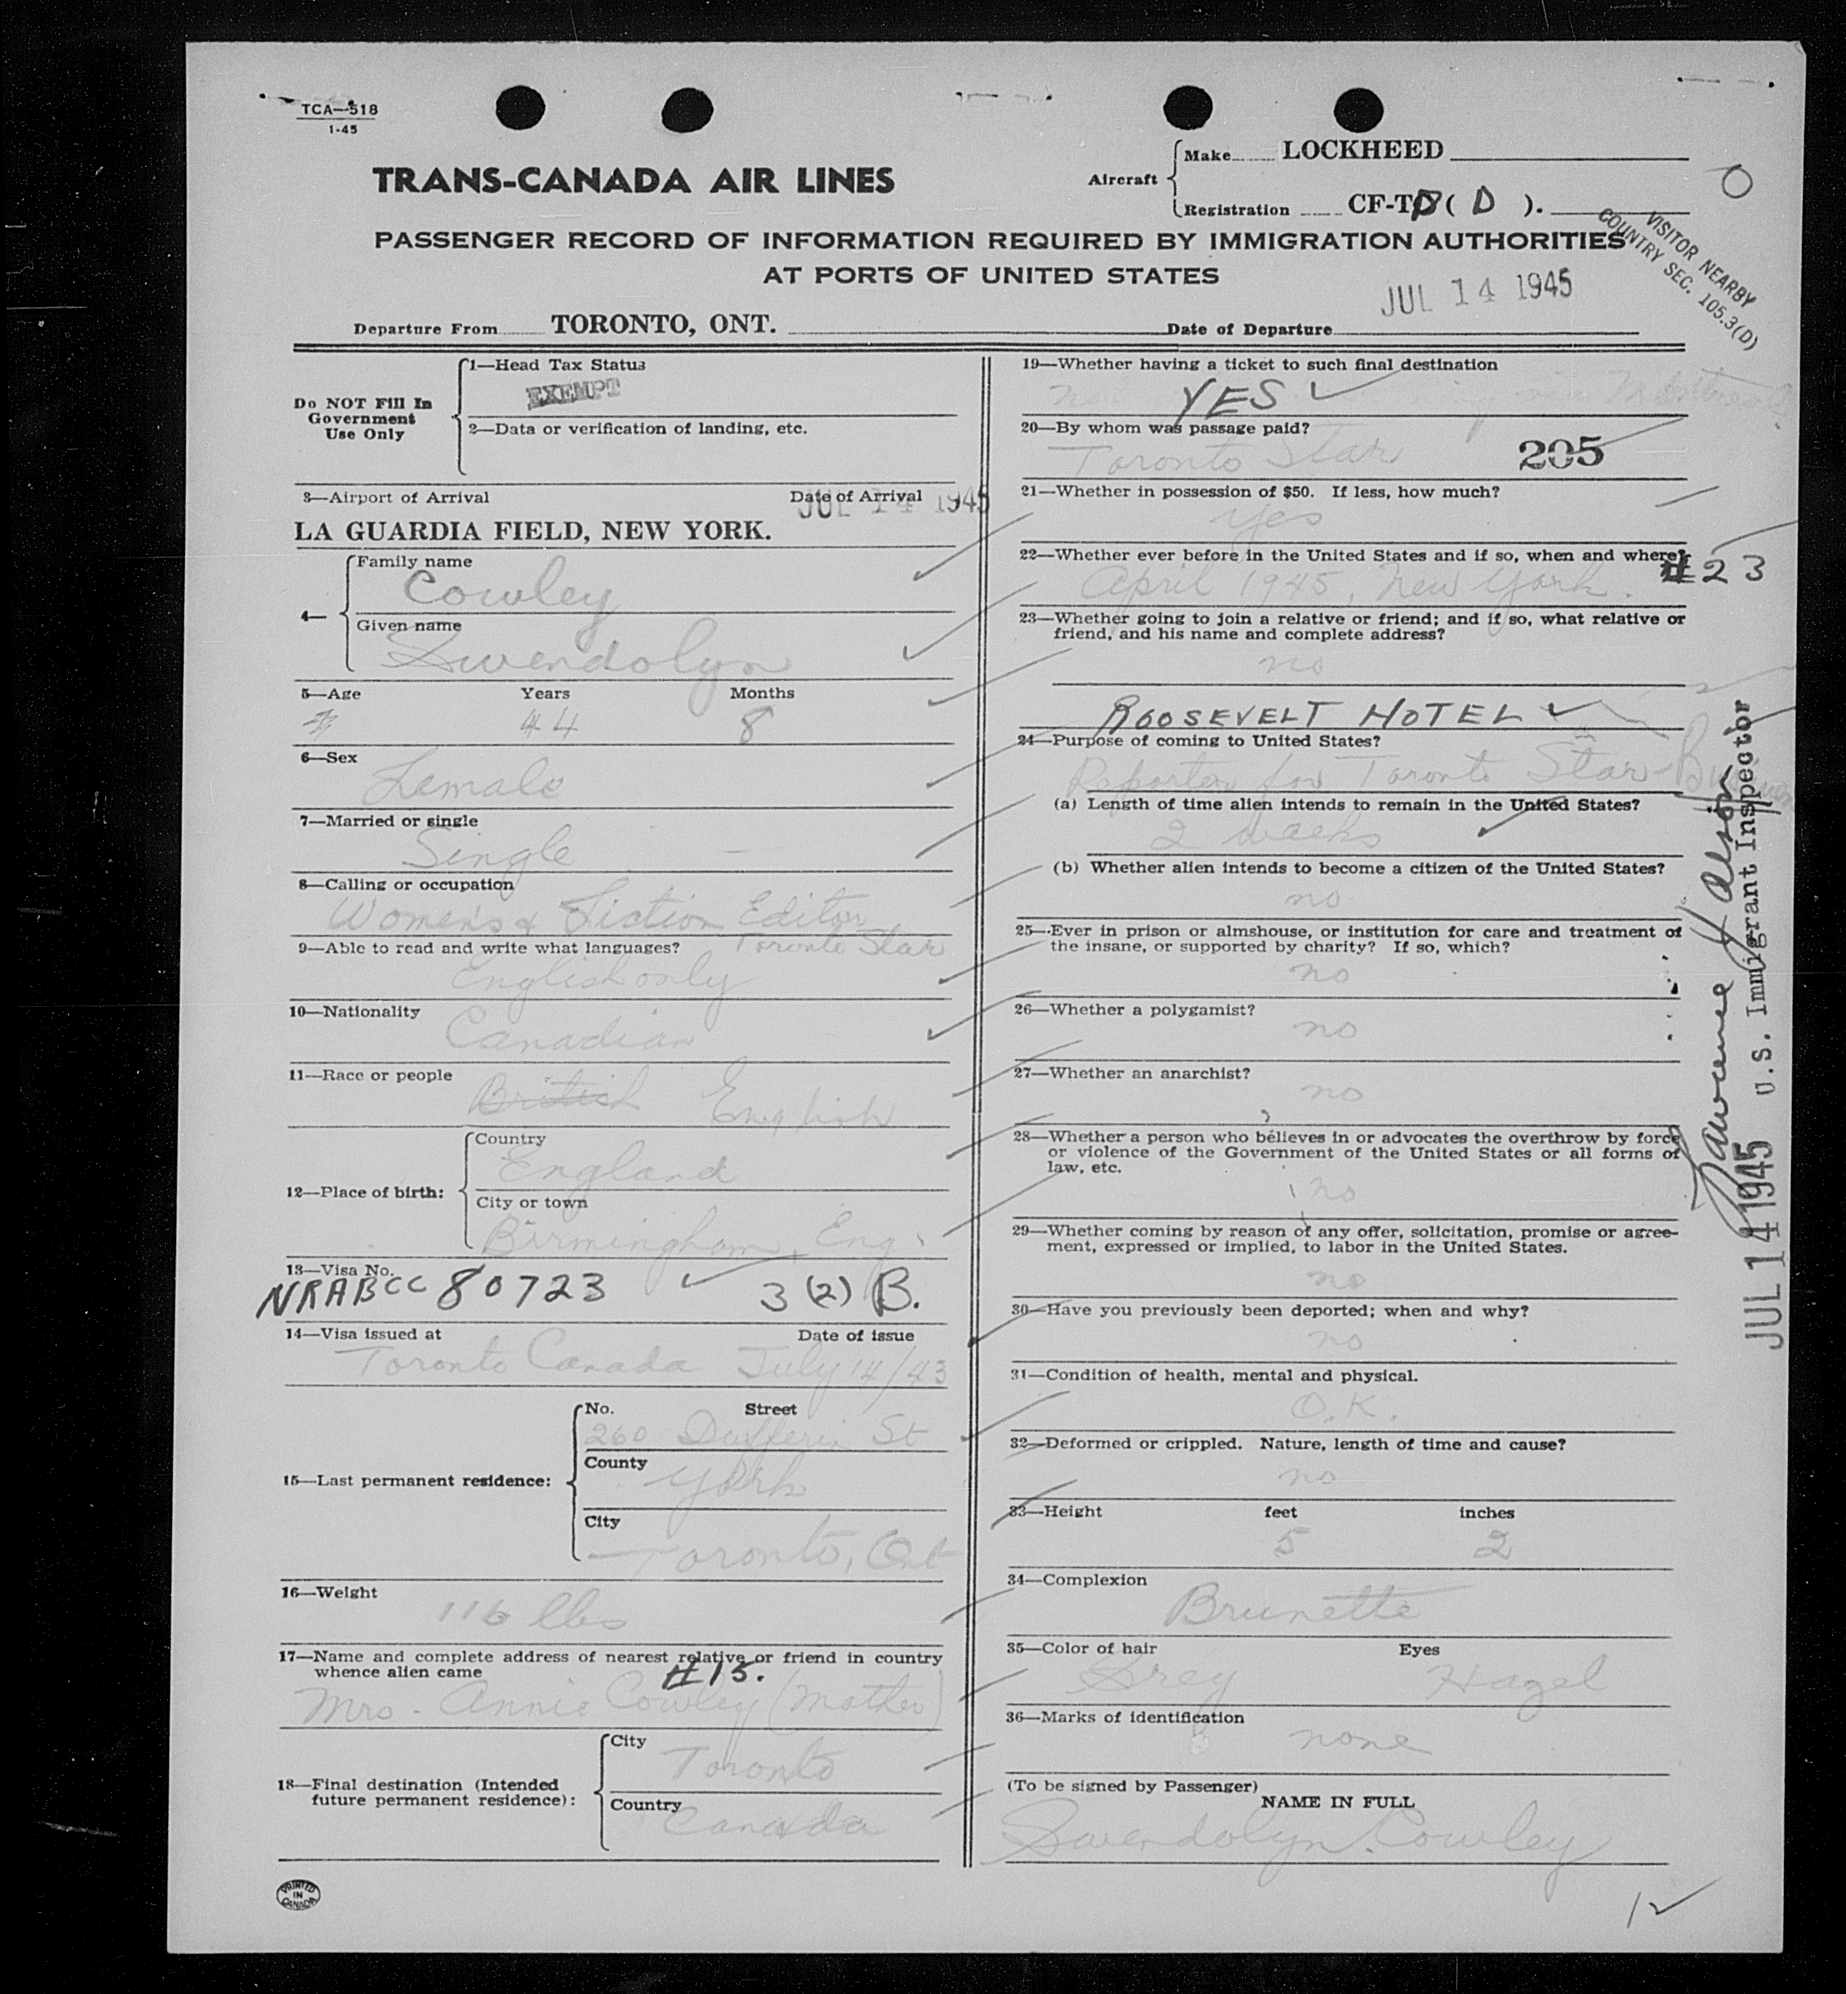 TCA—518
1-45
TRANS-CANADA AIR LINES
Aircraft
Make LOCKHEED
Registration CF-T ( D ).
PASSENGER RECORD OF INFORMATION REQUIRED BY IMMIGRATION AUTHORITIES
AT PORTS OF UNITED STATES
VISITOR NEARBY
COUNTRY SEC. 105.3(D)
JUL 14 1945
Departure From TORONTO, ONT. Date of Departure
Do NOT Fill In
Government
Use Only
1—Head Tax Status
EXEMPT
2—Data or verification of landing, etc.
3—Airport of Arrival Date of Arrival
JUL 14 1945
LA GUARDIA FIELD, NEW YORK.
4—
Family name
Cowley
Given name
Gwendolyn
5—Age Years Months
44 8
6—Sex
Female
7—Married or single
Single
8—Calling or occupation
Women's & Fiction Editor
Toronto Star
9—Able to read and write what languages?
English only
10—Nationality
Canadian
11—Race or people
British English
12—Place of birth:
Country
England
City or town
Birmingham, Eng.
13—Visa No.
NRABCC 80723 3 (2) B.
14—Visa issued at Date of issue
Toronto Canada July 14/43
15—Last permanent residence:
No. Street
260 Dufferin St
County
York
City
Toronto, Ont
16—Weight
116 lbs
17—Name and complete address of nearest relative or friend in country
whence alien came
#15.
Mrs. Annie Cowley (Mother)
18—Final destination (Intended
future permanent residence):
City
Toronto
Country
Canada
PRINTED
IN
CANADA
19—Whether having a ticket to such final destination
YES
20—By whom was passage paid?
Toronto Star
205
21—Whether in possession of $50. If less, how much?
yes
22—Whether ever before in the United States and if so, when and where?
#23
April 1945, New York.
23—Whether going to join a relative or friend; and if so, what relative or
friend, and his name and complete address?
no
ROOSEVELT HOTEL
24—Purpose of coming to United States?
Reporter for Toronto Star - Business
(a) Length of time alien intends to remain in the United States?
2 weeks
(b) Whether alien intends to become a citizen of the United States?
no
25—Ever in prison or almshouse, or institution for care and treatment of
the insane, or supported by charity? If so, which?
no
26—Whether a polygamist?
no
27—Whether an anarchist?
no
28—Whether a person who believes in or advocates the overthrow by force
or violence of the Government of the United States or all forms of
law, etc.
no
29—Whether coming by reason of any offer, solicitation, promise or agree-
ment, expressed or implied, to labor in the United States.
no
30—Have you previously been deported; when and why?
no
31—Condition of health, mental and physical.
O.K.
32—Deformed or crippled. Nature, length of time and cause?
no
33—Height feet inches
5 2
34—Complexion
Brunette
35—Color of hair Eyes
Grey Hazel
36—Marks of identification
none
(To be signed by Passenger)
NAME IN FULL
Gwendolyn Cowley
JUL 14 1945 U.S. Immigrant Inspector